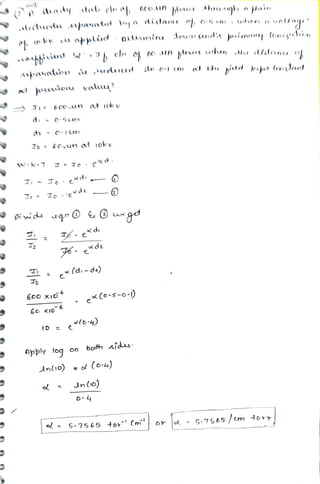 A steady state ch of 600 μA flows through a plain
electrodes separated by a distance of 0.5 cm when a voltage
of 10 kv is applied. Determine Townsend's primary ionization
coefficient 'α' if ch of 60 μA flows when the distance of
separation is reduced to 0.1 cm at the field kept constant
at previous value?
⇒ I1 = 600 μA at 10kv
d1 = 0.5cm
d2 = 0.1cm
I2 = 60 μA at 10kv
W.K.T I = I0 · e^αd
I1 = I0 · e^αd1 — ①
I2 = I0 · e^αd2 — ②
Divide eqn ① & ② we get
I1/I2 = I0 · e^αd1 / I0 · e^αd2
I1/I2 = e^α(d1-d2)
600 ×10^-6 / 60 ×10^-6 = e^α(0.5-0.1)
10 = e^α(0.4)
Apply log on both sides.
ln(10) = α (0.4)
α = ln(10) / 0.4
α = 5.7565 torr^-1 cm^-1 or α = 5.7565 /cm torr